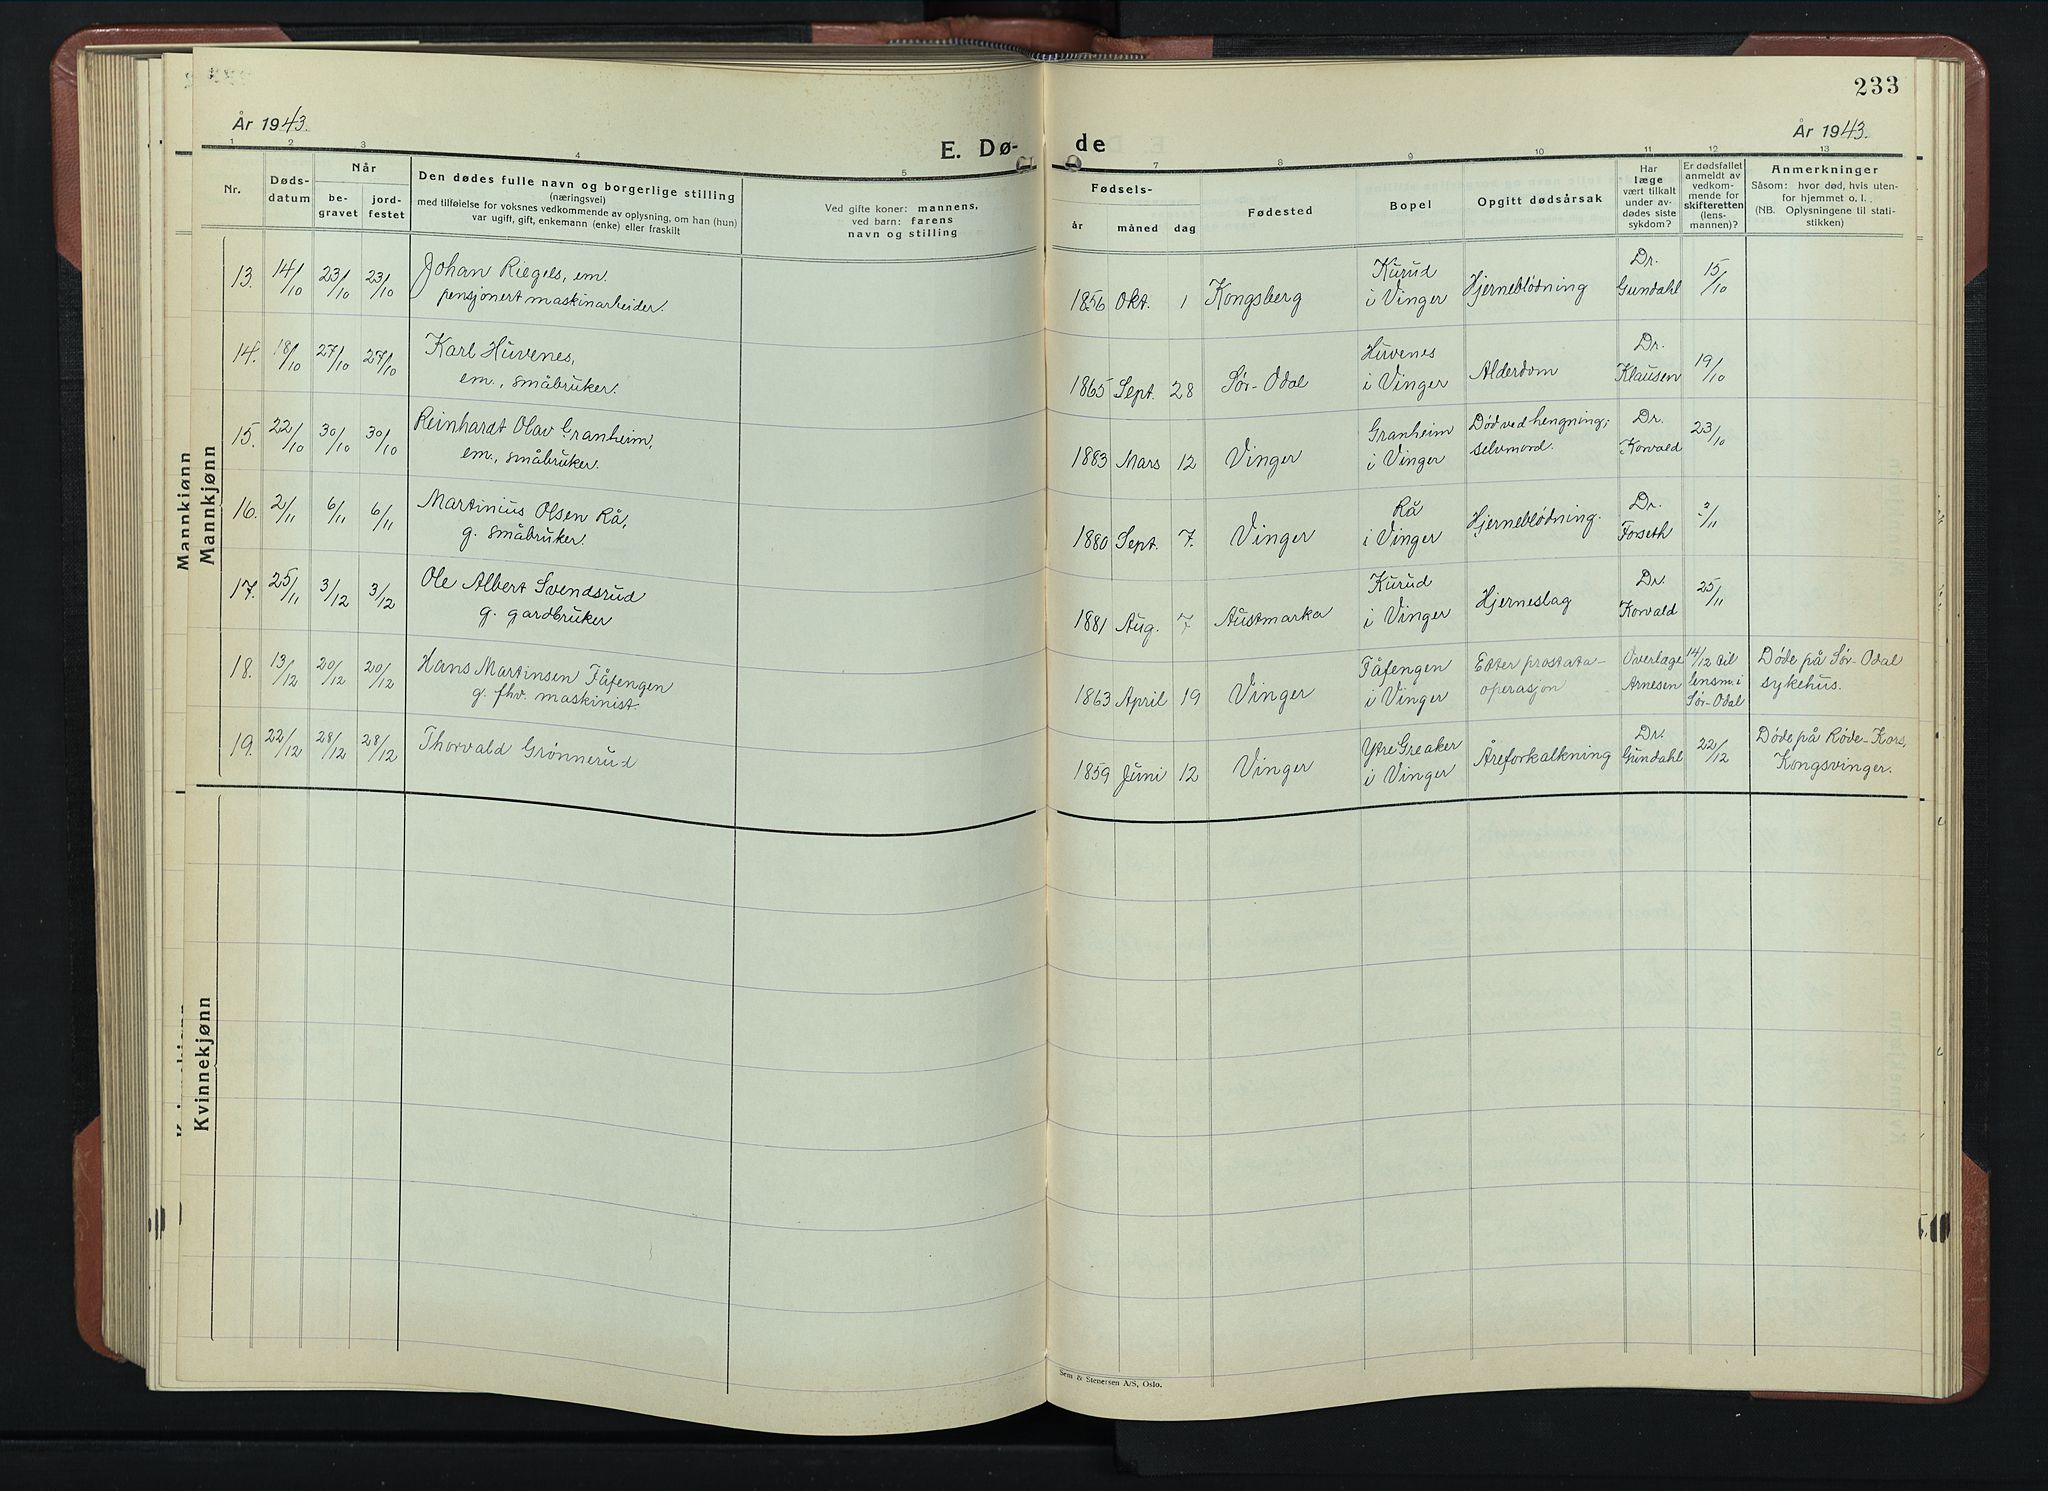 233
År 1943.
År 1943.
E. Dø-
de
1 2 3 4 5 7 8 9 10 11 12 13
Nr.
Døds-
datum
Når
be-
gravet
jord-
festet
Den dødes fulle navn og borgerlige stilling
(næringsvei)
med tilføielse for voksnes vedkommende av oplysning, om han (hun)
var ugift, gift, enkemann (enke) eller fraskilt
Ved gifte koner: mannens,
ved barn: farens
navn og stilling
Fødsels-
år måned dag
Fødested
Bopel
Opgitt dødsårsak
Har
læge
vært tilkalt
under av-
dødes siste
sykdom?
Er dødsfallet
anmeldt av
vedkom-
mende for
skifteretten
(lens-
mannen)?
Anmerkninger
Såsom: hvor død, hvis uten-
for hjemmet o. l.
(NB. Oplysningene til stati-
stikken)
Mannkjønn
Mannkjønn
13. 14/10 23/10 23/10 Johan Riegels, em.
pensjonert maskinarbeider.
1856 Okt. 1 Kongsberg
Kurud
i Vinger
Hjerneblødning
Dr.
Gundahl
15/10
14. 18/10 27/10 27/10 Karl Huvenes,
em., småbruker.
1865 Sept. 28 Sør-Odal
Huvenes
i Vinger
Alderdom
Dr.
Klausen
19/10
15. 22/10 30/10 30/10 Reinhardt Olav Granheim,
em., småbruker.
1883 Mars 12 Vinger
Granheim
i Vinger
Død ved hengning;
selvmord.
Dr.
Korvald
23/10
16. 2/11 6/11 6/11 Martinius Olsen Rå,
g. småbruker.
1880 Sept. 7. Vinger
Rå
i Vinger
Hjerneblødning.
Dr.
Forseth
2/11
17. 25/11 3/12 3/12 Ole Albert Svendsrud
g. gardbruker
1881 Aug. 7 Austmarka
Kurud
i Vinger
Hjerneslag
Dr.
Korvald
25/11
18. 13/12 20/12 20/12 Hans Martinsen Fåfengen
g. fhv. maskinist.
1863 April 19 Vinger
Fåfengen
i Vinger
Etter prostata-
operasjon
Overlæge
Arnesen
14/12 til
lensm. i
Sør-Odal
Døde på Sør-Odal
sykehus.
19. 22/12 28/12 28/12 Thorvald Grønnerud
1859 Juni 12 Vinger
Ytre Greaker
i Vinger
Åreforkalkning
Dr.
Gundahl
22/12
Døde på Røde-Kors,
Kongsvinger.
Kvinnekjønn
Sem & Stenersen A/S, Oslo.